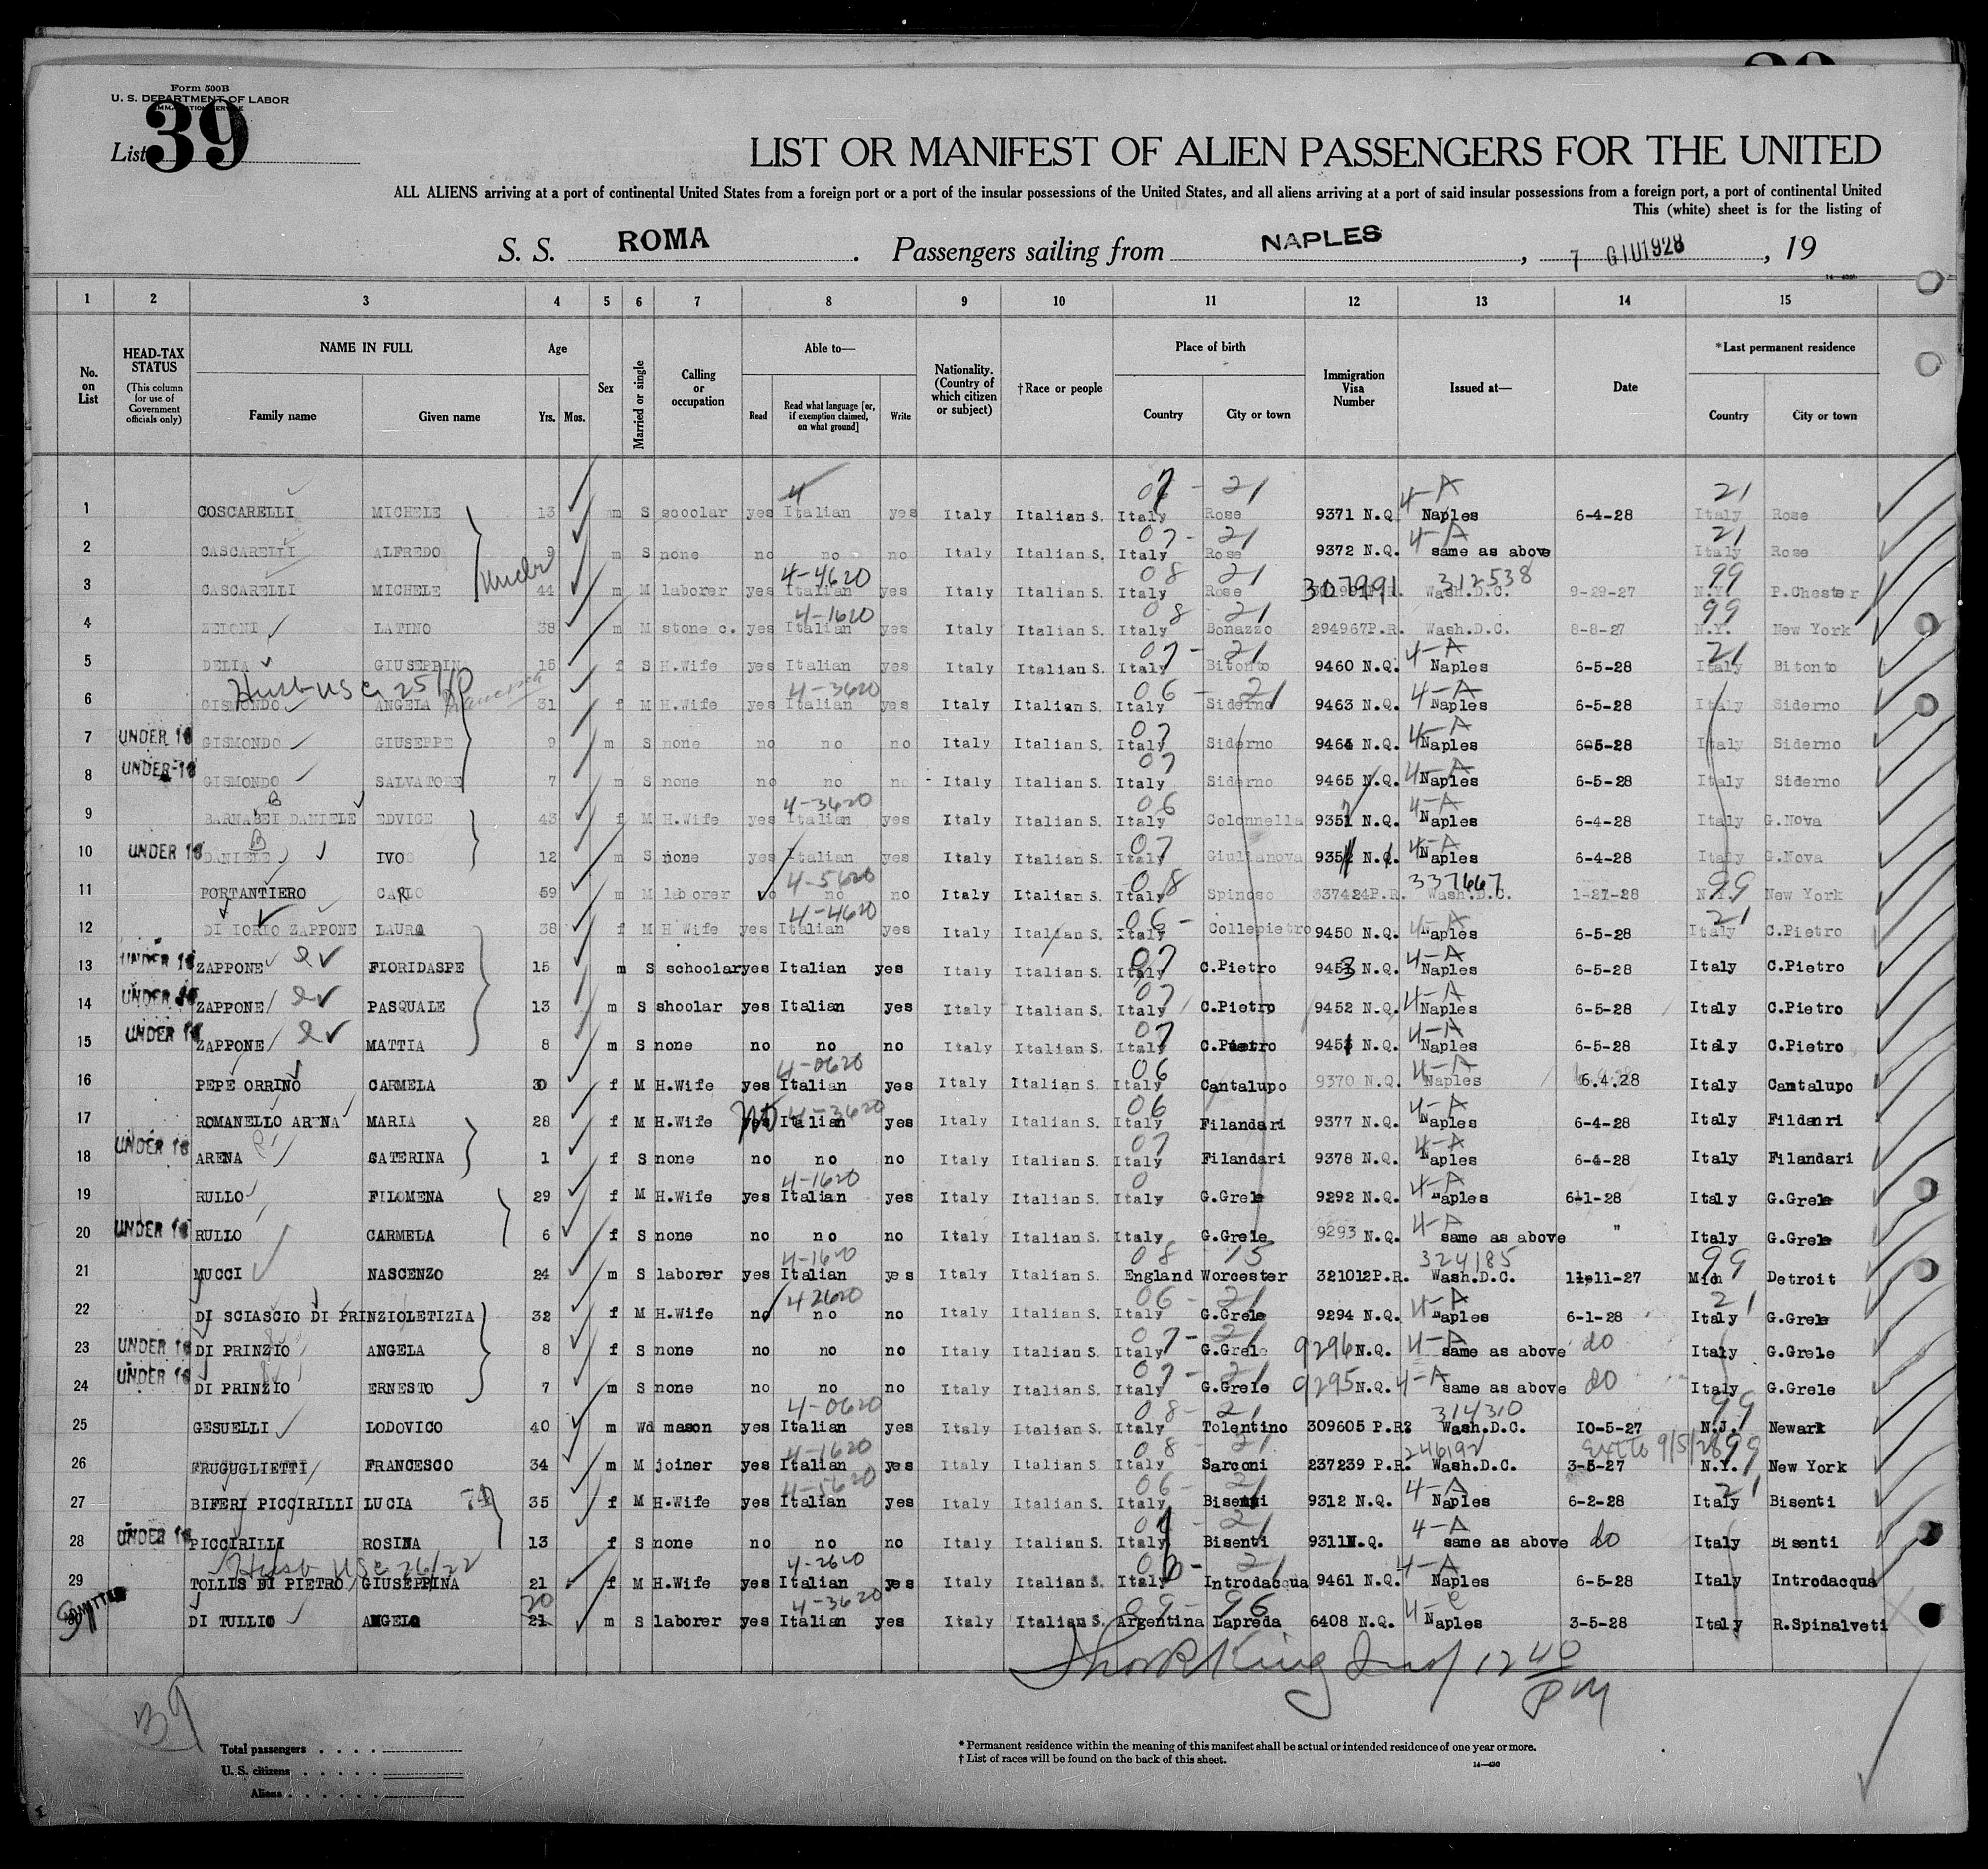 Form 500B
U. S. DEPARTMENT OF LABOR
List 39
LIST OR MANIFEST OF ALIEN PASSENGERS FOR THE UNITED
ALL ALIENS arriving at a port of continental United States from a foreign port or a port of the insular possessions of the United States, and all aliens arriving at a port of said insular possessions from a foreign port, a port of continental United
This (white) sheet is for the listing of
S. S. ROMA . Passengers sailing from NAPLES , 7 GIU 1928 , 19
1 2 3 4 5 6 7 8 9 10 11 12 13 14 15
No. on List
HEAD-TAX STATUS (This column for use of Government officials only)
NAME IN FULL Family name Given name
Age Yrs. Mos.
Sex
Married or single
Calling or occupation
Able to— Read Read what language [or, if exemption claimed, on what ground] Write
Nationality. (Country of which citizen or subject)
†Race or people
Place of birth Country City or town
Immigration Visa Number
Issued at—
Date
*Last permanent residence Country City or town
1 COSCARELLI MICHELE 13 m S scoolar yes Italian yes Italy Italian S. Italy Rose 9371 N.Q. Naples 6-4-28 Italy Rose
2 CASCARELLI ALFREDO 9 m S none no no no Italy Italian S. Italy Rose 9372 N.Q. same as above Italy Rose
3 CASCARELLI MICHELE 44 m M laborer yes Italian 4-4620 yes Italy Italian S. Italy Rose 307991 312538 Wash.D.C. 9-29-27 N.Y. P.Chester
4 ZEIONI LATINO 38 m M stone c. yes Italian 4-1620 yes Italy Italian S. Italy Bonazzo 294967P.R. Wash.D.C. 8-8-27 N.Y. New York
5 DELIA GIUSEPPIN 15 f S H.Wife yes Italian yes Italy Italian S. Italy Bitonto 9460 N.Q. Naples 6-5-28 Italy Bitonto
6 GISMONDO ANGELA 31 f M H.Wife yes Italian 4-3620 yes Italy Italian S. Italy Siderno 9463 N.Q. Naples 6-5-28 Italy Siderno
7 UNDER 16 GISMONDO GIUSEPPE 9 m S none no no no Italy Italian S. Italy Siderno 9464 N.Q. Naples 6-5-28 Italy Siderno
8 UNDER 16 GISMONDO SALVATORE 7 m S none no no no Italy Italian S. Italy Siderno 9465 N.Q. Naples 6-5-28 Italy Siderno
9 BARNABEI DANIELE EDVIGE 43 f M H.Wife yes Italian 4-3620 yes Italy Italian S. Italy Colonnella N.Q. Naples 6-4-28 Italy G.Nova
10 UNDER 16 DANIELE IVO 12 m S none yes Italian yes Italy Italian S. Italy Giulianova Naples 6-4-28 Italy G.Nova
11 PORTANTIERO CARLO 59 m M laborer no no 4-5620 no Italy Italian S. Italy Spinoso 337424P.R. 337667 Wash.D.C. 1-27-28 N.Y. New York
12 DI IORIO ZAPPONE LAURA 38 f M H Wife yes Italian 4-4620 yes Italy Italian S. Italy Collepietro 9450 N.Q. Naples 6-5-28 Italy C.Pietro
13 UNDER 16 ZAPPONE FIORIDASPE 15 m S schoolar yes Italian yes Italy Italian S. Italy C.Pietro 9453 N.Q. Naples 6-5-28 Italy C.Pietro
14 UNDER 16 ZAPPONE PASQUALE 13 m S shoolar yes Italian yes Italy Italian S. Italy C.Pietro 9452 N.Q. Naples 6-5-28 Italy C.Pietro
15 UNDER 16 ZAPPONE MATTIA 8 m S none no no no Italy Italian S. Italy C.Pietro 9451 N.Q. Naples 6-5-28 Italy C.Pietro
16 PEPE ORRINO CARMELA 30 f M H.Wife yes Italian 4-0620 yes Italy Italian S. Italy Cantalupo 9370 N.Q. Naples 6.4.28 Italy Cantalupo
17 ROMANELLO ARENA MARIA 28 f M H.Wife no Italian 4-3620 yes Italy Italian S. Italy Filandari 9377 N.Q. Naples 6-4-28 Italy Fildanri
18 UNDER 16 ARENA CATERINA 1 f S none no no no Italy Italian S. Italy Filandari 9378 N.Q. Naples 6-4-28 Italy Filandari
19 RULLO FILOMENA 29 f M H.Wife yes Italian 4-1620 yes Italy Italian S. Italy G.Grele 9292 N.Q. Naples 6-1-28 Italy G.Grele
20 UNDER 16 RULLO CARMELA 6 f S none no no no Italy Italian S. Italy G.Grele 9293 N.Q. same as above " Italy G.Grele
21 MUCCI NASCENZO 24 m S laborer yes Italian 4-1620 yes Italy Italian S. England Worcester 321012P.R. 324185 Wash.D.C. 11-11-27 Mich Detroit
22 DI SCIASCIO DI PRINZIO LETIZIA 32 f M H.Wife no no 4 2620 no Italy Italian S. Italy G.Grele 9294 N.Q. Naples 6-1-28 Italy G.Grele
23 UNDER 16 DI PRINZIO ANGELA 8 f S none no no no Italy Italian S. Italy G.Grele 9296 N.Q. same as above do Italy G.Grele
24 UNDER 16 DI PRINZIO ERNESTO 7 m S none no no no Italy Italian S. Italy G.Grele 9295 N.Q. same as above do Italy G.Grele
25 GESUELLI LODOVICO 40 m Wd mason yes Italian 4-0620 yes Italy Italian S. Italy Tolentino 309605 P.R. 314310 Wash.D.C. 10-5-27 N.J. Newark
26 FRUGUGLIETTI FRANCESCO 34 m M joiner yes Italian 4-1620 yes Italy Italian S. Italy Sarconi 237239 P.R. 246192 Wash.D.C. 3-5-27 ext to 9/5/28 N.Y. New York
27 BIFERI PICCIRILLI LUCIA 35 f M H.Wife yes Italian 4-5620 yes Italy Italian S. Italy Bisenti 9312 N.Q. Naples 6-2-28 Italy Bisenti
28 UNDER 16 PICCIRILLI ROSINA 13 f S none no no no Italy Italian S. Italy Bisenti 9311N.Q. same as above do Italy Bisenti
Husb USC 26/22
29 TOLLIS DI PIETRO GIUSEPPINA 21 f M H.Wife yes Italian 4-2620 yes Italy Italian S. Italy Introdacqua 9461 N.Q. Naples 6-5-28 Italy Introdacqua
ADMITTED DI TULLIO ANGELO 20 21 m S laborer yes Italian 4-3620 yes Italy Italian S. Argentina Lapreda 6408 N.Q. Naples 3-5-28 Italy R.Spinalveti
King Insp 12 40 PM
39
Total passengers
U. S. citizens
Aliens
* Permanent residence within the meaning of this manifest shall be actual or intended residence of one year or more.
† List of races will be found on the back of this sheet.